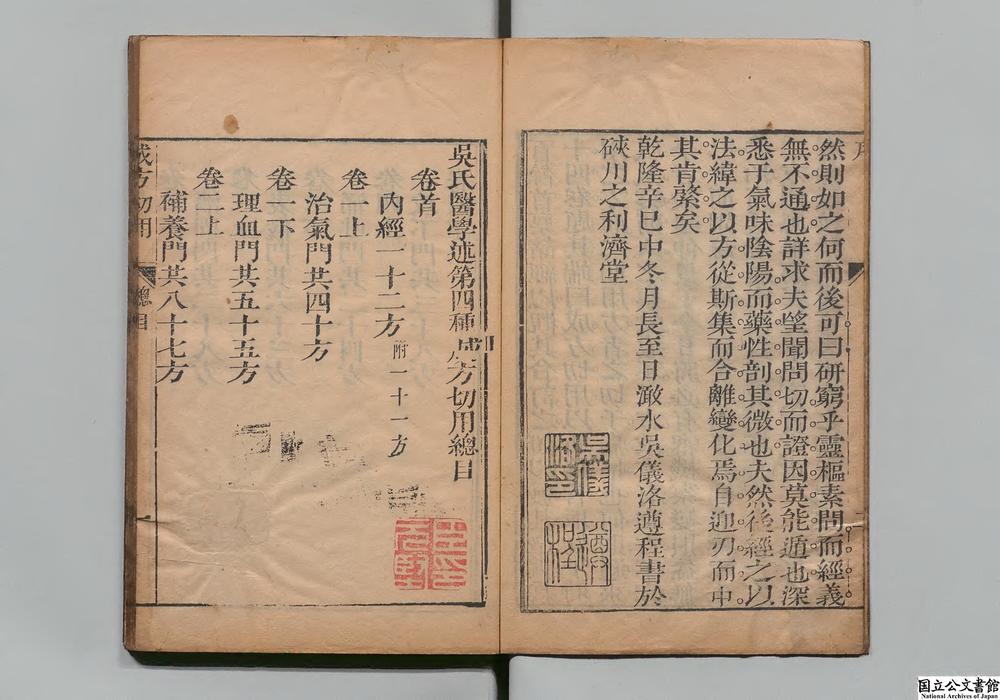 序
然則如之何而後可曰研窮乎靈樞素問而經義
無不通也詳求夫朢聞問切而證因莫能遁也深
悉于氣味陰陽而藥性剖其微也夫然後經之以
法緯之以方從斯集而合離變化焉自迎刃而中
其肯綮矣
乾隆辛巳中冬月長至日澉水吳儀洛遵程書於
硤川之利濟堂
吳儀洛印
遵程
吳氏醫學述第四種 成方切用總目
卷首
內經一十二方 附一十一方
卷一上
治氣門共四十方
卷一下
理血門共五十五方
卷二上
補養門共八十七方
成方切用 總目 一
国立公文書館
National Archives of Japan